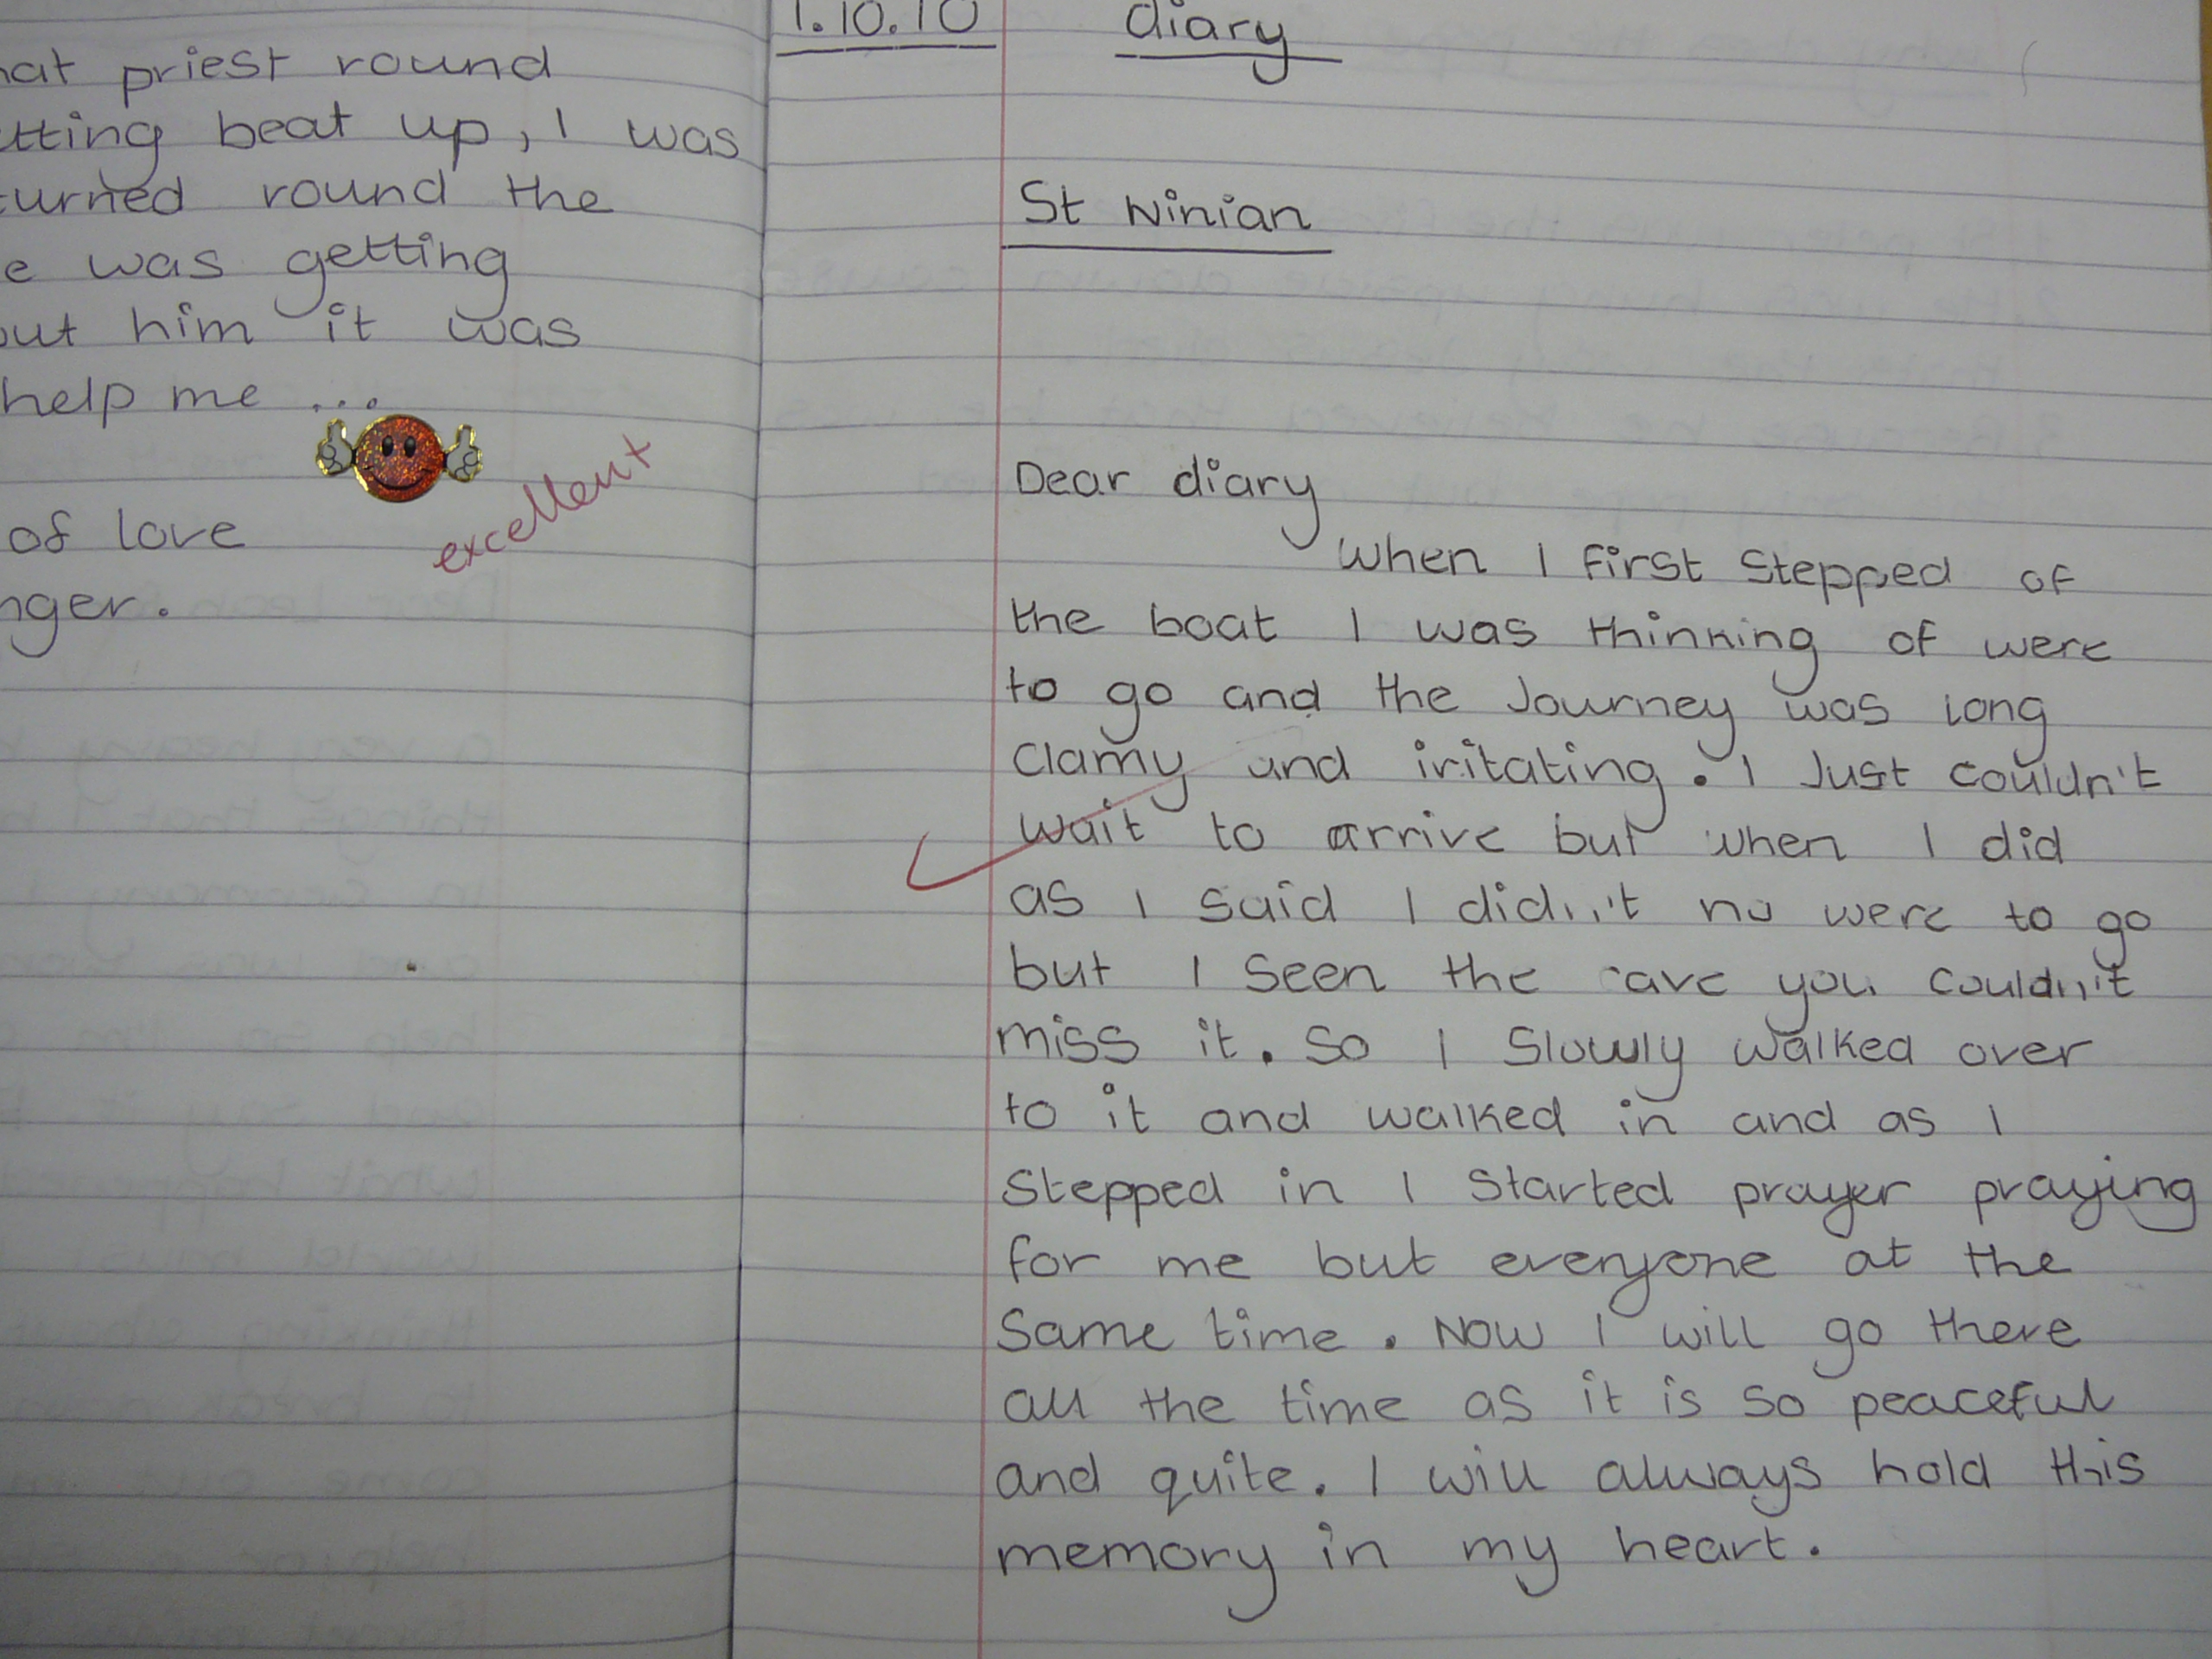 priest round
beat up, I was
turned round the
e was getting
out him it was
help me ...
excellent
of love
nger.
1.10.10 diary
St Ninian
Dear diary
When I first stepped of
the boat I was thinking of were
to go and the Journey was long
clamy and iritating. I Just couldn't
wait to arrive but when I did
as I said I didn't no were to go
but I seen the cave you couldn't
miss it. So I slowly walked over
to it and walked in and as I
stepped in I started prayer praying
for me but everyone at the
same time. Now I will go there
all the time as it is so peaceful
and quite. I will always hold this
memory in my heart.